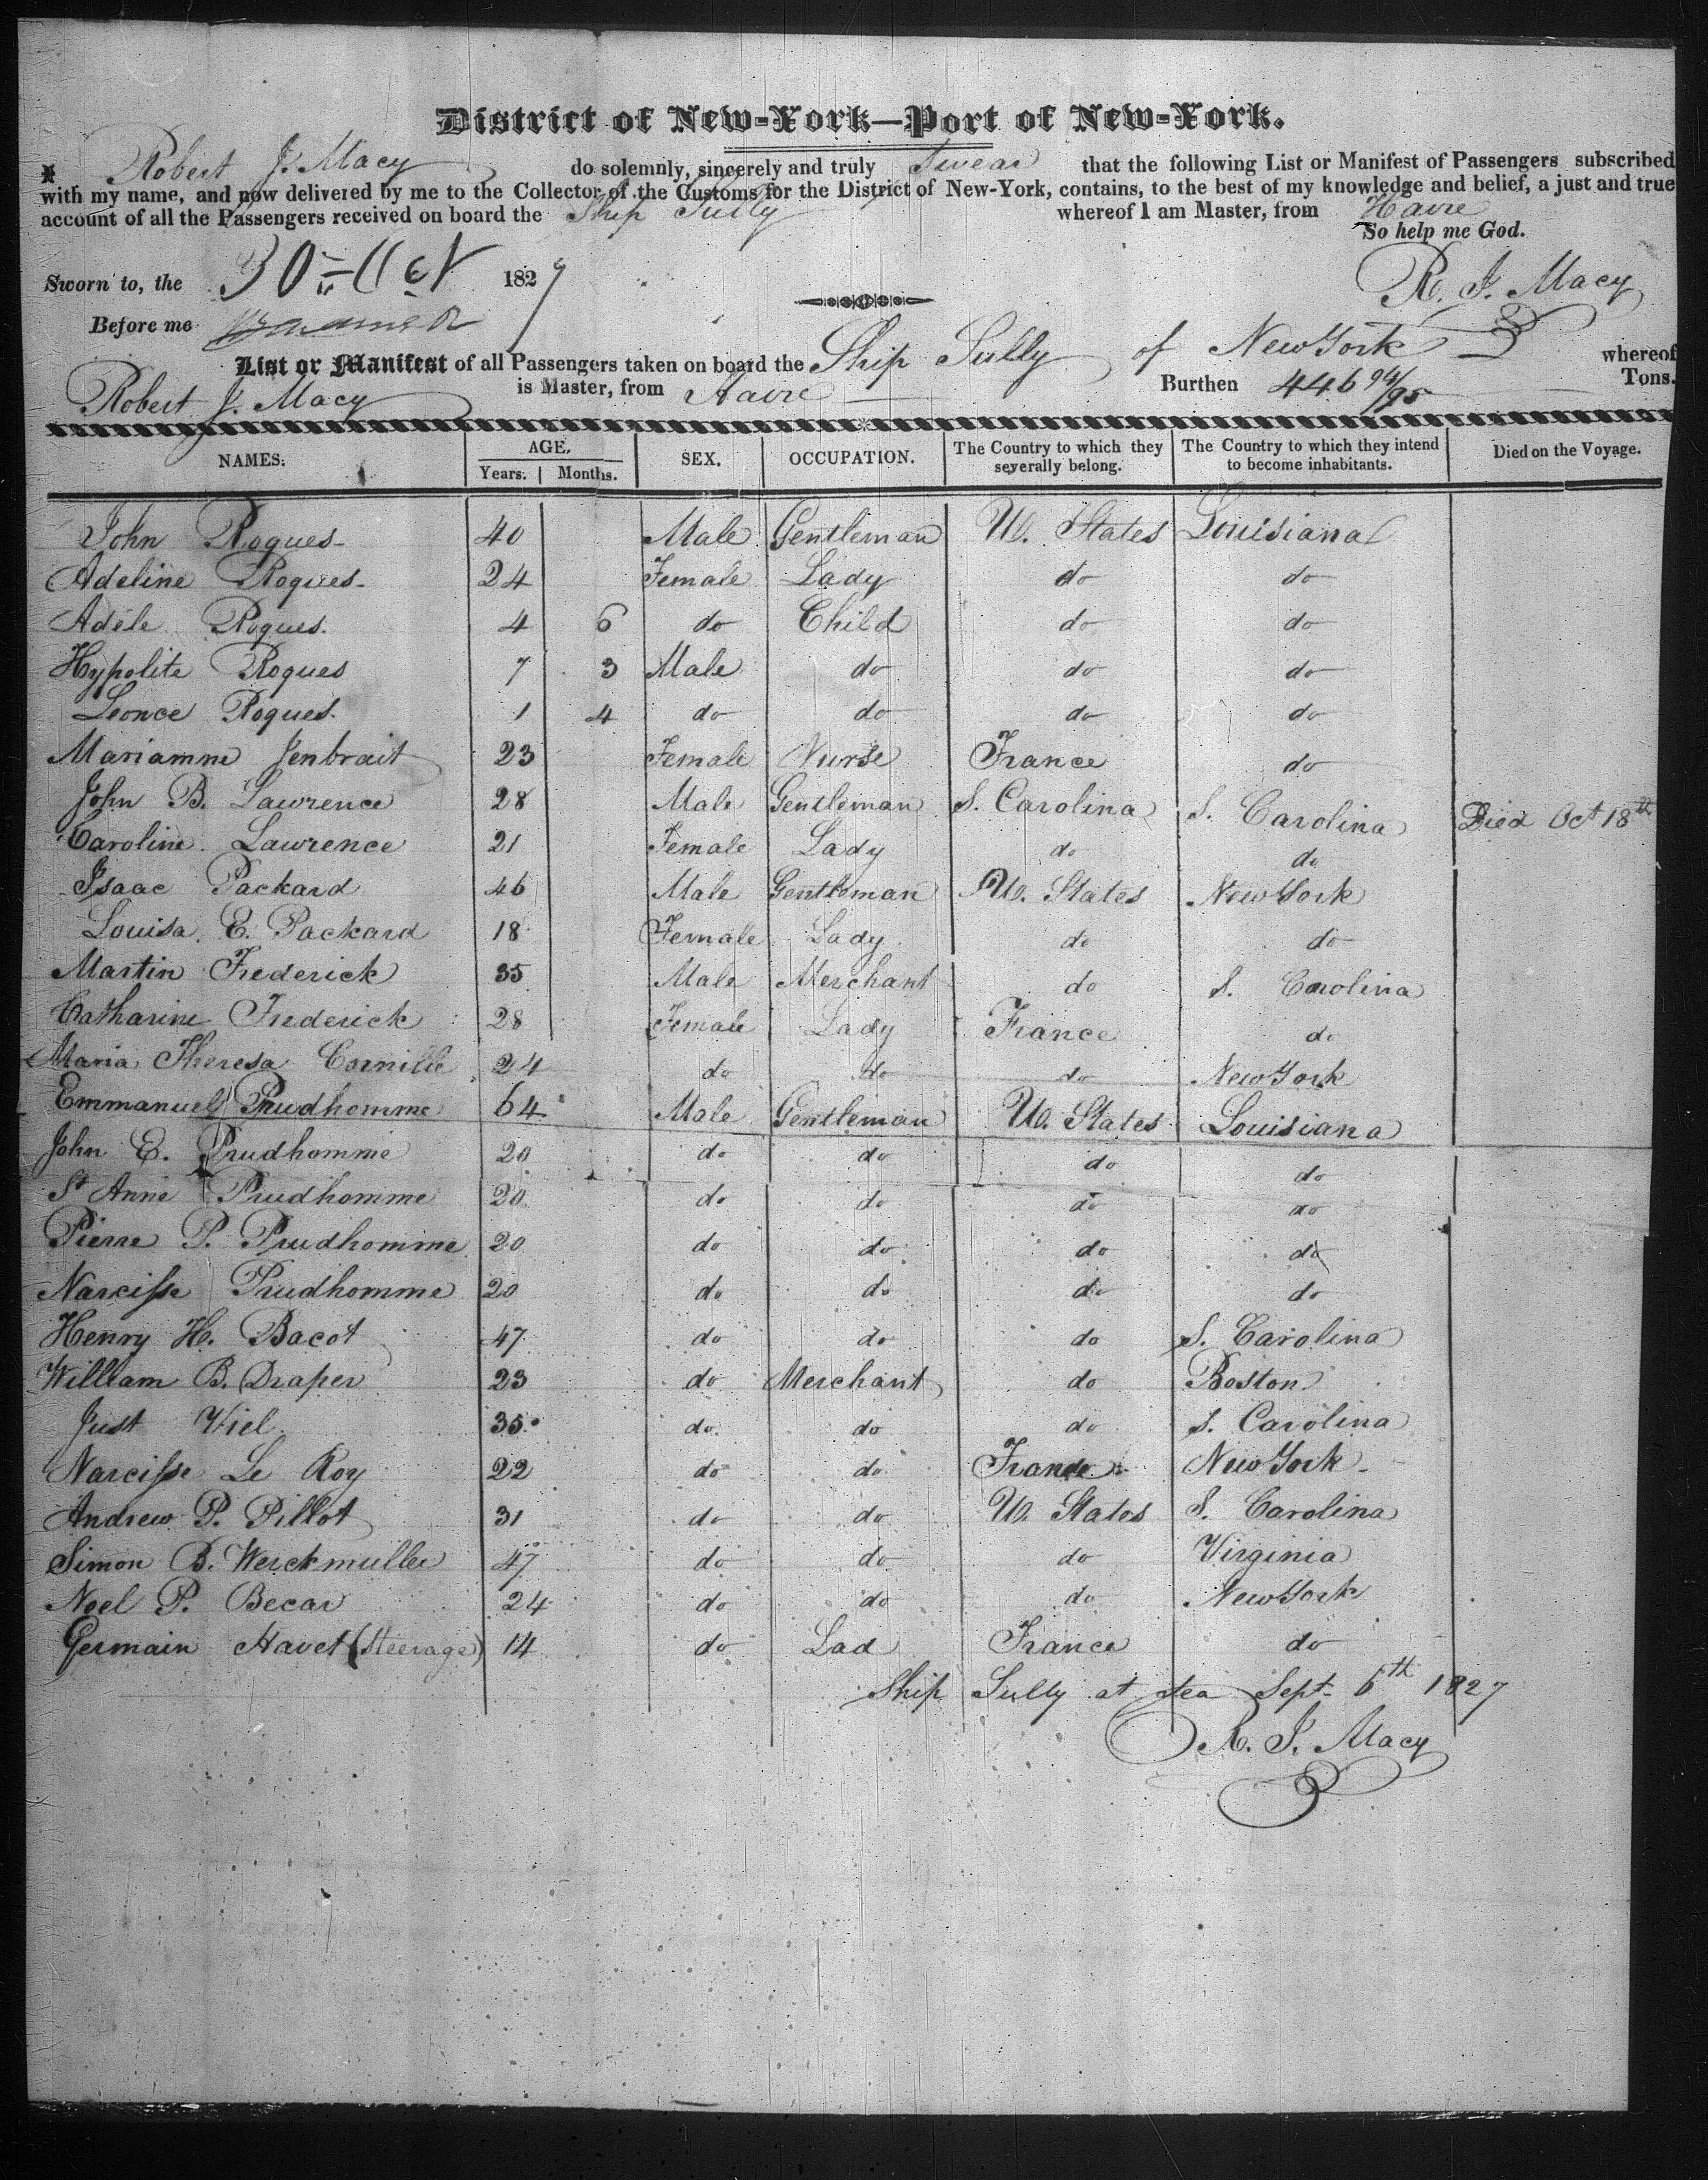 District of New-York—Port of New-York.
I Robert J. Macy do solemnly, sincerely and truly Swear that the following List or Manifest of Passengers subscribed
with my name, and now delivered by me to the Collector of the Customs for the District of New-York, contains, to the best of my knowledge and belief, a just and true
account of all the Passengers received on board the Ship Sully whereof I am Master, from Havre
So help me God.
Sworn to, the 30 Oct 1827
R. J. Macy
Before me
List or Manifest of all Passengers taken on board the Ship Sully of New York whereof
Robert J. Macy is Master, from Havre Burthen 446 94/95 Tons.
NAMES. AGE. Years. Months. SEX. OCCUPATION. The Country to which they severally belong. The Country to which they intend to become inhabitants. Died on the Voyage.
John Roques 40 Male Gentleman U. States Louisiana
Adeline Roques 24 Female Lady do do
Adéle Roques. 4 6 do Child do do
Hypolite Roques 7 3 Male do do do
Leonce Roques. 1 4 do do do do
Mariamne Jenbrait 23 Female Nurse France do
John B. Lawrence 28 Male Gentleman S. Carolina S. Carolina Died Oct 18th
Caroline Lawrence 21 Female Lady do do
Isaac Packard 46 Male Gentleman U. States New York
Louisa E. Packard 18 Female Lady do do
Martin Frederick 35 Male Merchant do S. Carolina
Catharine Frederick 28 Female Lady France do
Maria Theresa Cornille 24 do do do New York
Emmanuel Prudhomme 64 Male Gentleman U. States Louisiana
John E. Prudhomme 20 do do do do
St Anne Prudhomme 20 do do do do
Pierre P. Prudhomme 20 do do do do
Narcisse Prudhomme 20 do do do do
Henry H. Bacot 47 do do do S. Carolina
William B. Draper 23 do Merchant do Boston
Just Viel 35 do do do S. Carolina
Narcisse Le Roy 22 do do France New York
Andrew P. Pillot 31 do do U. States S. Carolina
Simon B. Werckmuller 47 do do do Virginia
Noel P. Becar 24 do do do New York
Germain Havet (Steerage) 14 do Lad France do
Ship Sully at Sea Sept 6th 1827
R. J. Macy